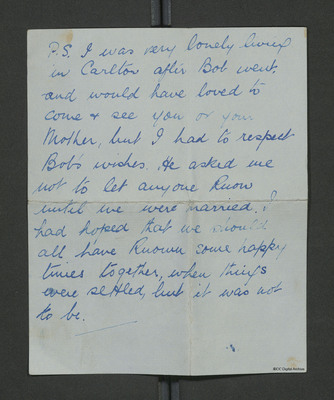 P.S. I was very lonely living
in Carlton after Bob went,
and would have loved to
come & see you or your
Mother, but I had to respect
Bob's wishes. He asked me
not to let anyone know
until we were married, I
had hoped that we should
all have known some happy
times together, when things
were settled, but it was not
to be.
IBCC Digital Archive